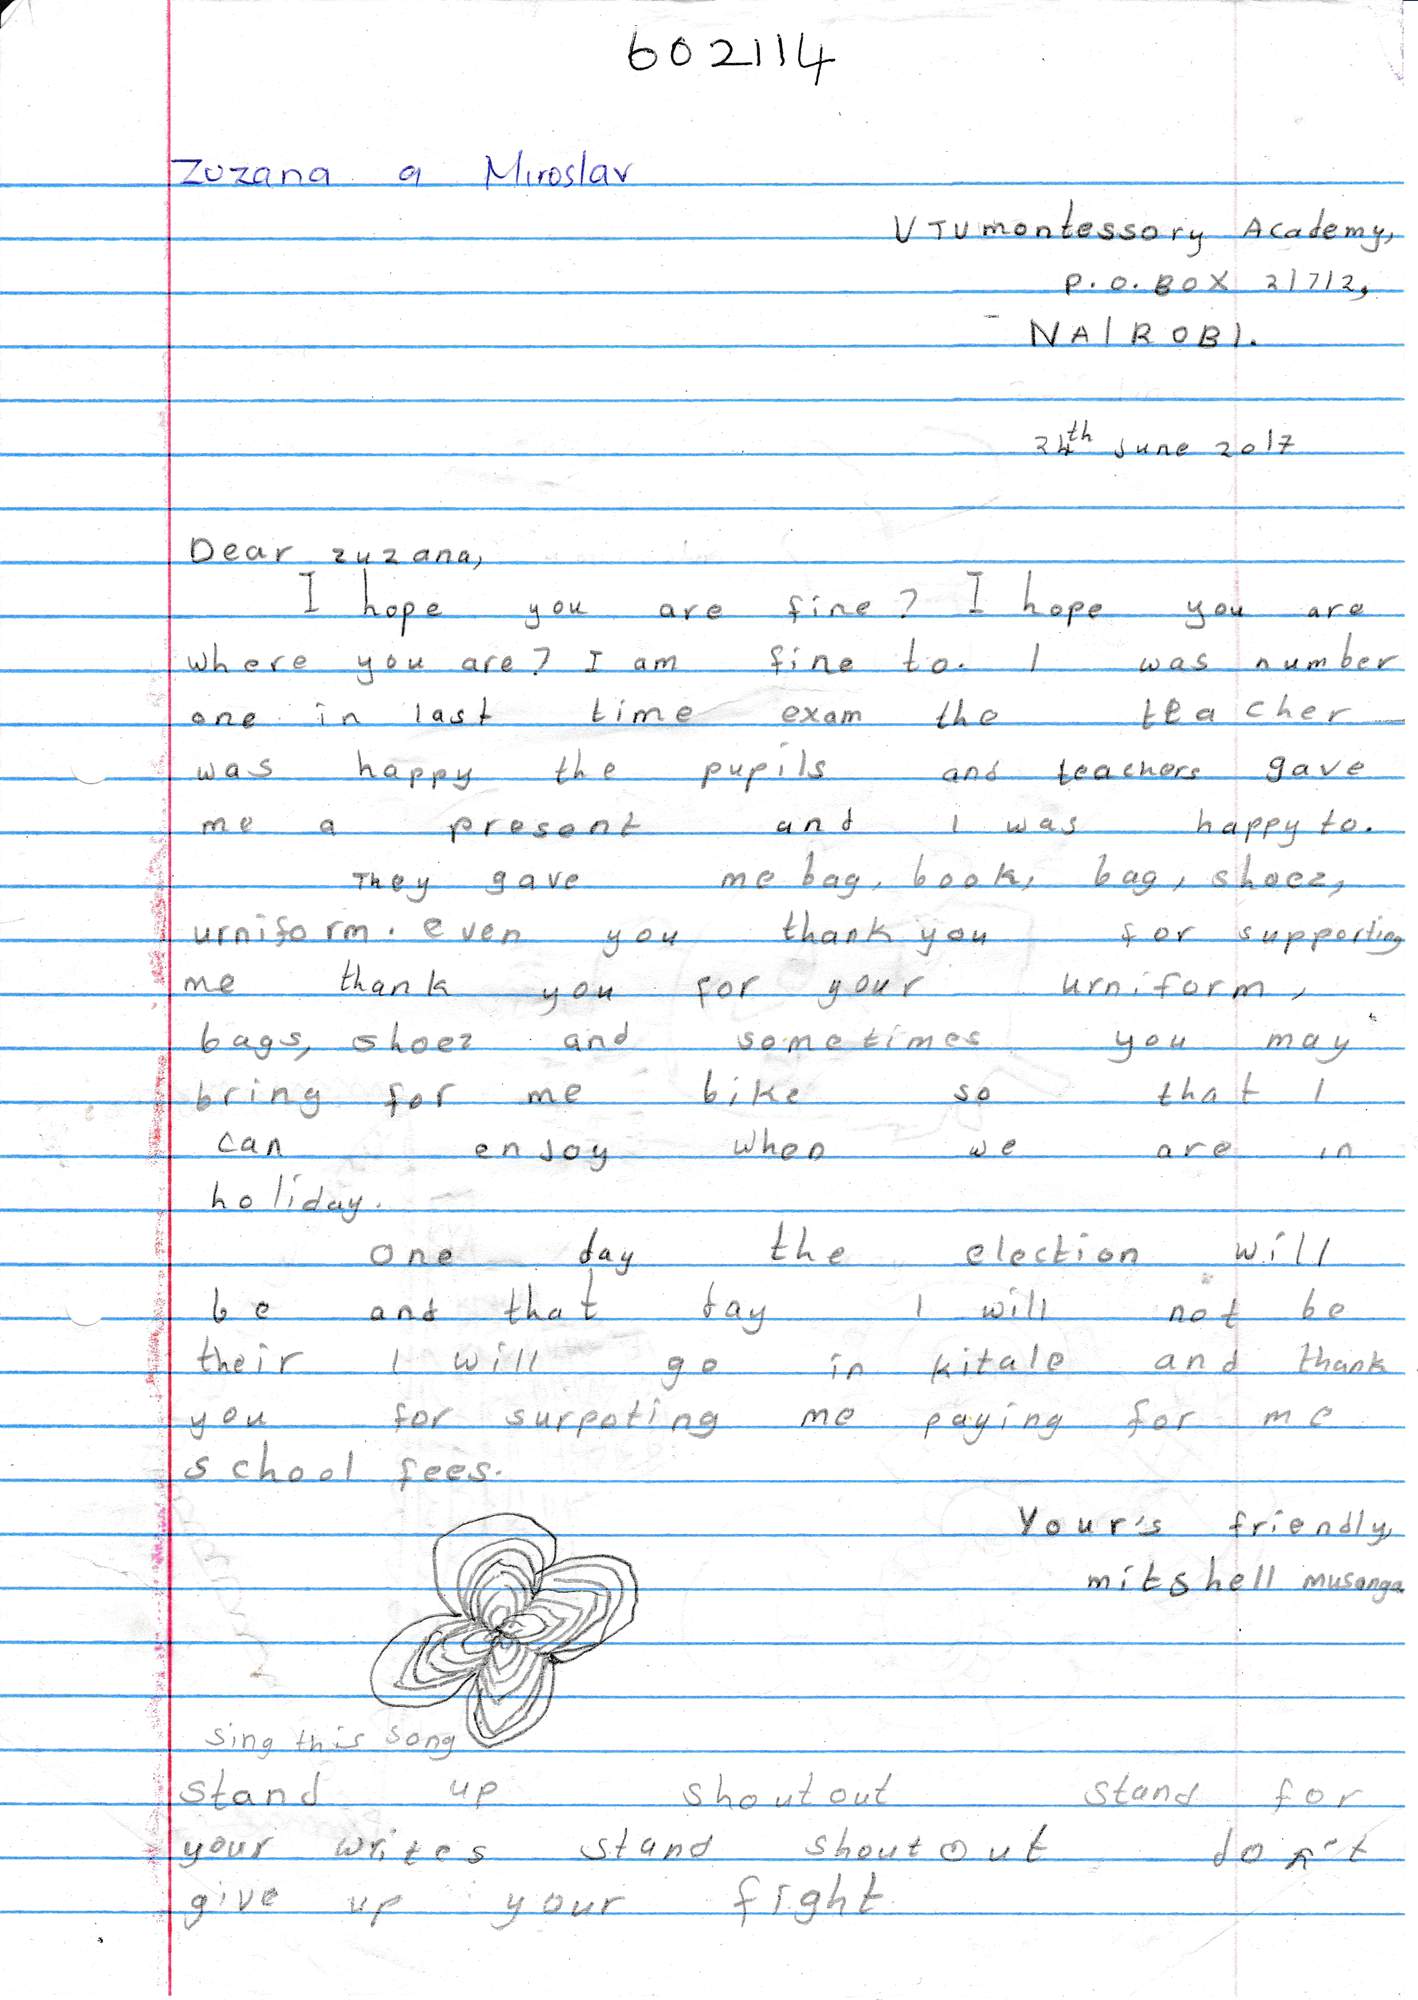 602114
Zuzana a Miroslav
VTUmontessory Academy,
P.O. BOX 21712,
NAIROBI.
24th June 2017
Dear zuzana,
I hope you are fine? I hope you are
where you are? I am fine to. I was number
one in last time exam the teacher
was happy the pupils and teachers gave
me a present and I was happy to.
They gave me bag, book, bag, shoez,
urniform. even you thank you for supporting
me thank you for your urniform,
bags, shoez and sometimes you may
bring for me bike so that I
can enjoy when we are in
holiday.
One day the election will
be and that day I will not be
their I will go in kitale and thank
you for surpoting me paying for me
school fees.
Your's friendly,
mitshell musanga
Sing this song
stand up shoutout stand for
your writes stand shoutout don't
give up your fight